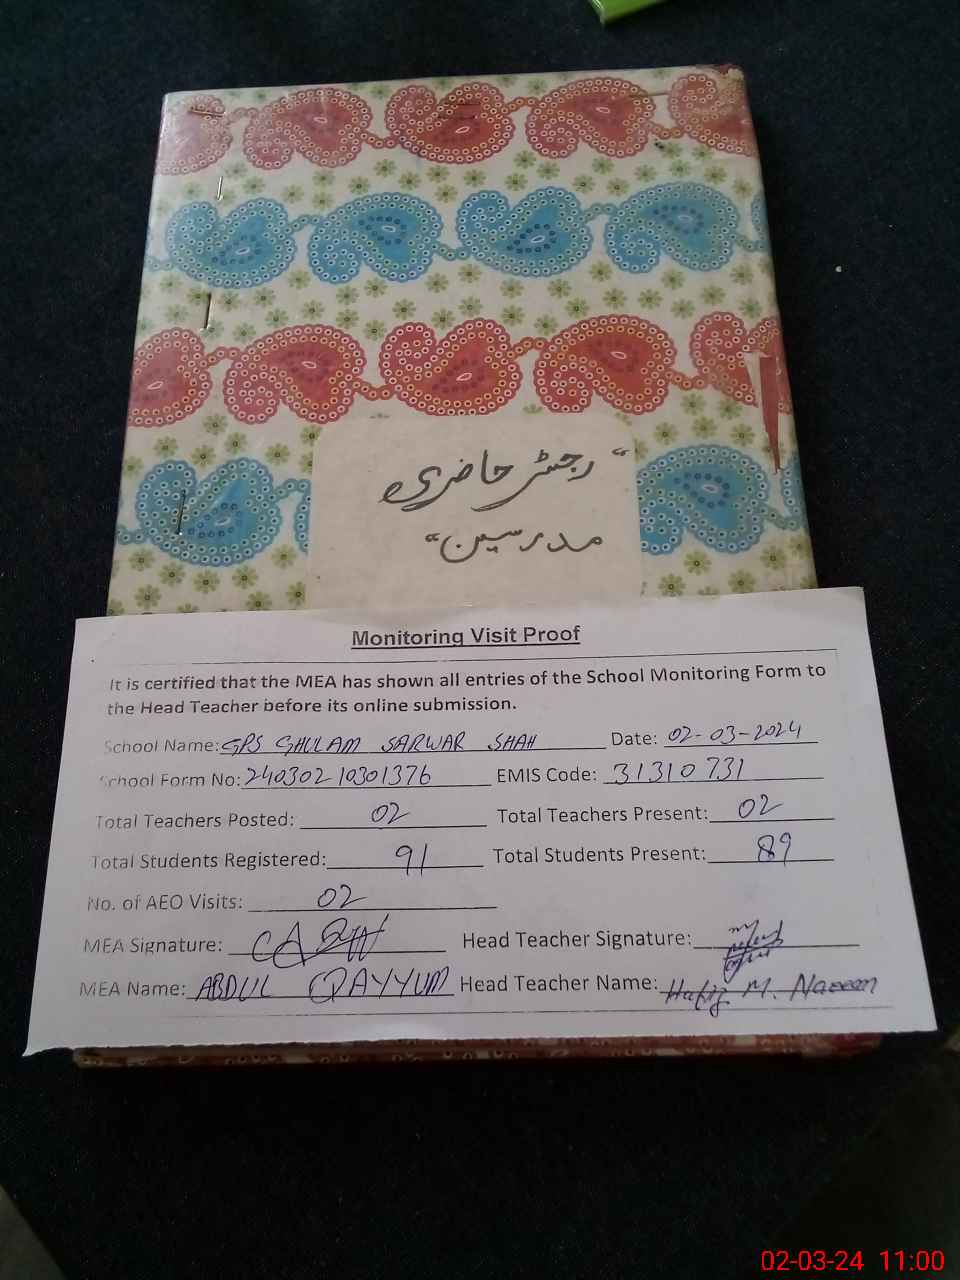 "رجسٹر حاضری
مدرسین"
Monitoring Visit Proof
It is certified that the MEA has shown all entries of the School Monitoring Form to
the Head Teacher before its online submission.
School Name: GPS GHULAM SARWAR SHAH Date: 02-03-2024
School Form No: 24030210301376 EMIS Code: 31310731
Total Teachers Posted: 02 Total Teachers Present: 02
Total Students Registered: 91 Total Students Present: 89
No. of AEO Visits: 02
MEA Signature: Head Teacher Signature:
MEA Name: ABDUL QAYYUM Head Teacher Name: Hafiz M. Naeem
02-03-24 11:00